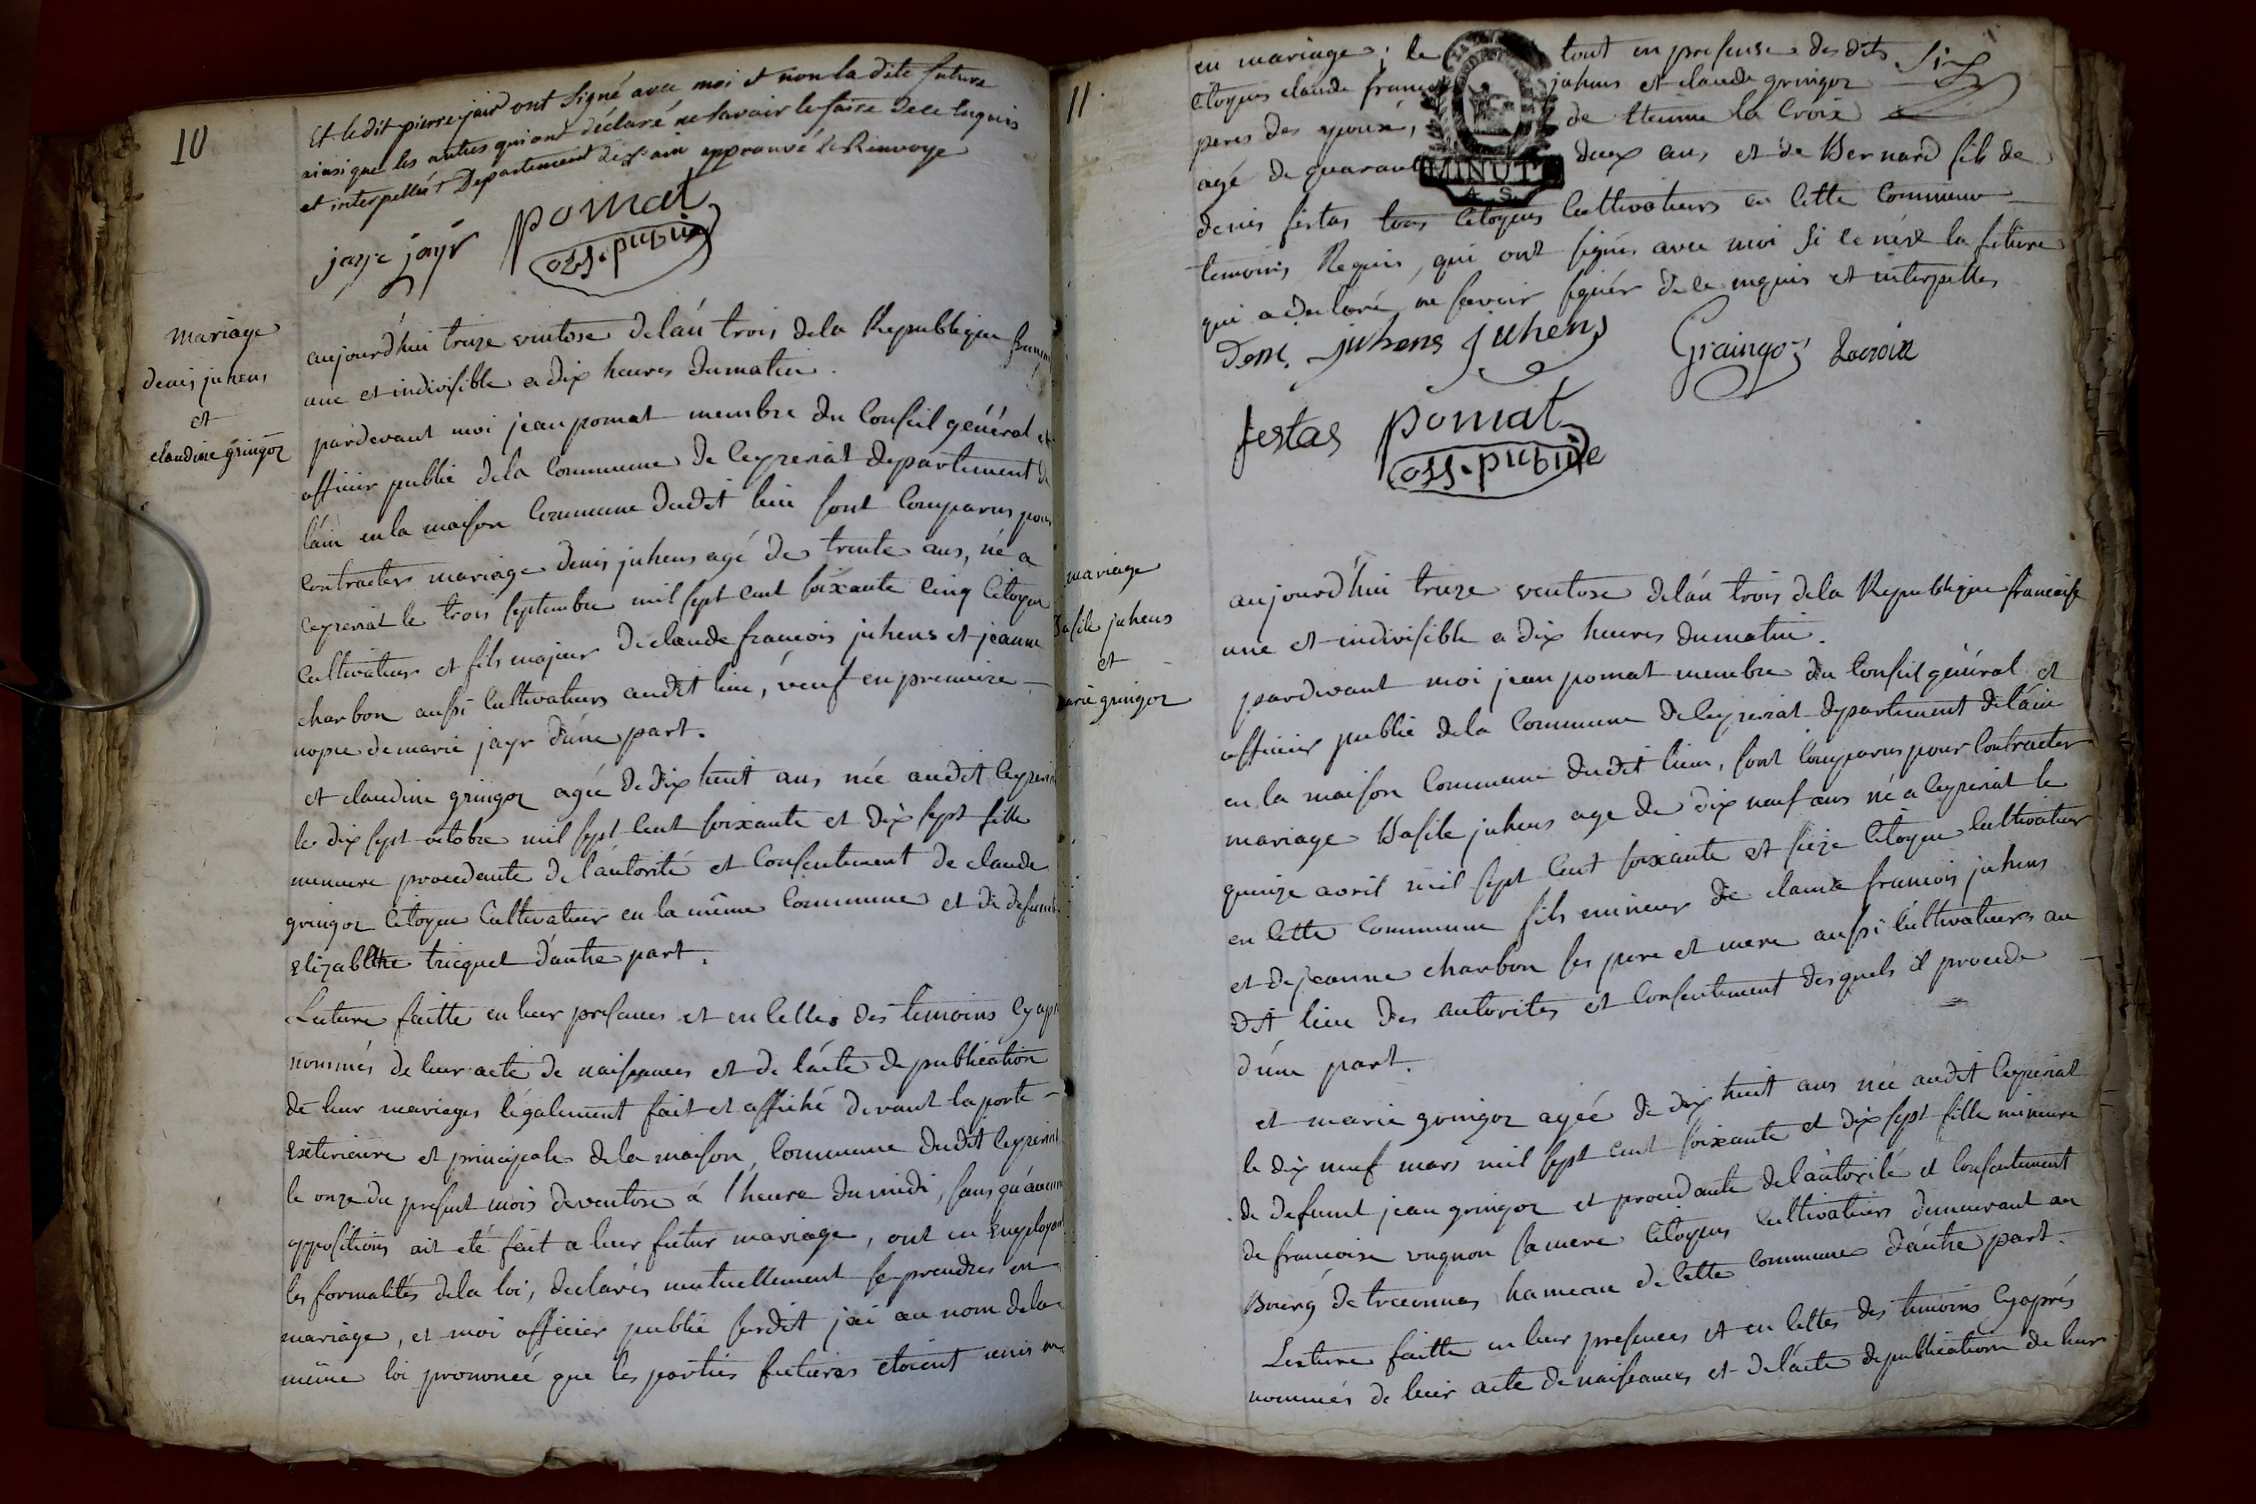 10
Et le dit pierre jair ont signé avec moi et non la dite future
ainsi que les autres qui ont déclaré ne savoir le faire de ce enquis
et interpellés Departement de l'ain approuvé le Renvoye
jayr
pomat
off. public
mariage
denis juhens
et
claudine gringoz
aujourd'hui treize ventose de l'an trois de la Republique
une et indivisible a dix heures du matin.
pardevant moi jean pomat membre du Conseil général et
officier public de la Commune de Ceyzeriat departement de
l'ain en la maison Commune dudit lieu sont Comparus pour
Contracter mariage denis juhens agé de trente ans, né a
Ceyzeriat le trois septembre mil sept cent soixante cinq Citoyen
Cultivateur et fils majeur de claude françois juhens et jeanne
charbon aussi Cultivateurs audit lieu, veuf en premiere
nopce de marie jayr d'une part.
et claudine gringoz agée de dix huit ans née audit Ceyzeriat
le dix sept octobre mil sept cent soixante et dix sept fille
mineure procedante de l'autorité et Consentement de claude
gringoz Citoyen Cultivateur en la même Commune et de defunte
Elizabethe tricquet d'autre part.
Lecture faitte en leur presances et en celles des temoins Cy apr
nommés de leur acte de naissances et de l'acte de publication
de leur mariages légalement fait et affiché devant la porte
Exterieure et principale de la maison Commune dudit Ceyzeriat
le onze du present mois de ventose à l'heure du midi, sans qu'aucune
oppositions ait eté fait a leur futur mariage, ont en Employant
les formalités de la loi, declarés mutuellement se prendre en
mariage, et moi officier public susdit j'ai au nom de la
même loi prononcé que les parties futures étoient unis en
11
en mariage; le tout en presense des dits
Citoyens claude franç juhens et claude gringoz
peres des epoux, de Etienne la Croix
agé de quarant deux ans et de Bernard fils de
denis festas tous Citoyens Cultivateurs en Cette Commune
temoins Requis, qui ont signés avec moi si ce n'est la future
qui a declaré ne savoir signér de ce enquis et interpelles
MINUT
A. S.
Deni juhens juhens
Graingoz
Lacroix
festas
pomat
off. public
mariage
Basile juhens
et
marie gringoz
aujourd'hui treize ventose de l'an trois de la Republique francaise
une et indivisible a dix heures du matin.
pardevant moi jean pomat membre du Conseil général et
officier public de la Commune de Ceyzeriat departement de l'ain
en la maison Commune dudit lieu, sont Comparus pour Contracter
mariage Basile juhens age de dix neuf ans né a Ceyzeriat le
quinze avril mil sept Cent soixante et seize Citoyen Cultivateur
en Cette Commune fils mineur de claude francois juhens
et de jeanne charbon ses pere et mere aussi Cultivateurs au
dit lieu des autorites et Consentement desquels il procede
d'une part.
et marie gringoz agée de dix huit ans née audit Ceyzeriat
le dix neuf mars mil sept cent soixante et dix sept fille mineure
de defunt jean gringoz et procedante de l'autorité et Consentement
de francoise vugnon sa mere Citoyens Cultivateurs demeurant au
Bourg de treconnas hameau de Cette Commune d'autre part.
Lecture faitte en leur presences et en Celles des temoins Cy après
nommés de leur acte de naissances et de l'acte de publication de leur